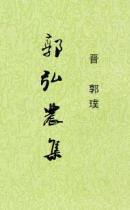 晋 郭璞
郭弘農集